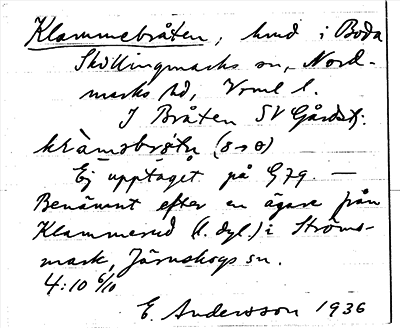 Klammebråten, hmd i Boda
Skillingmarks sn, Nord-
marks hd, Vrml l.
I Bråten SV Gårdst.
Ej upptaget på G79. —
Benämnt efter en ägare från
Klammerud (l. dyl.) i Ströms-
mark, Järnskogs sn.
4:10 6/10
E. Andersson 1936